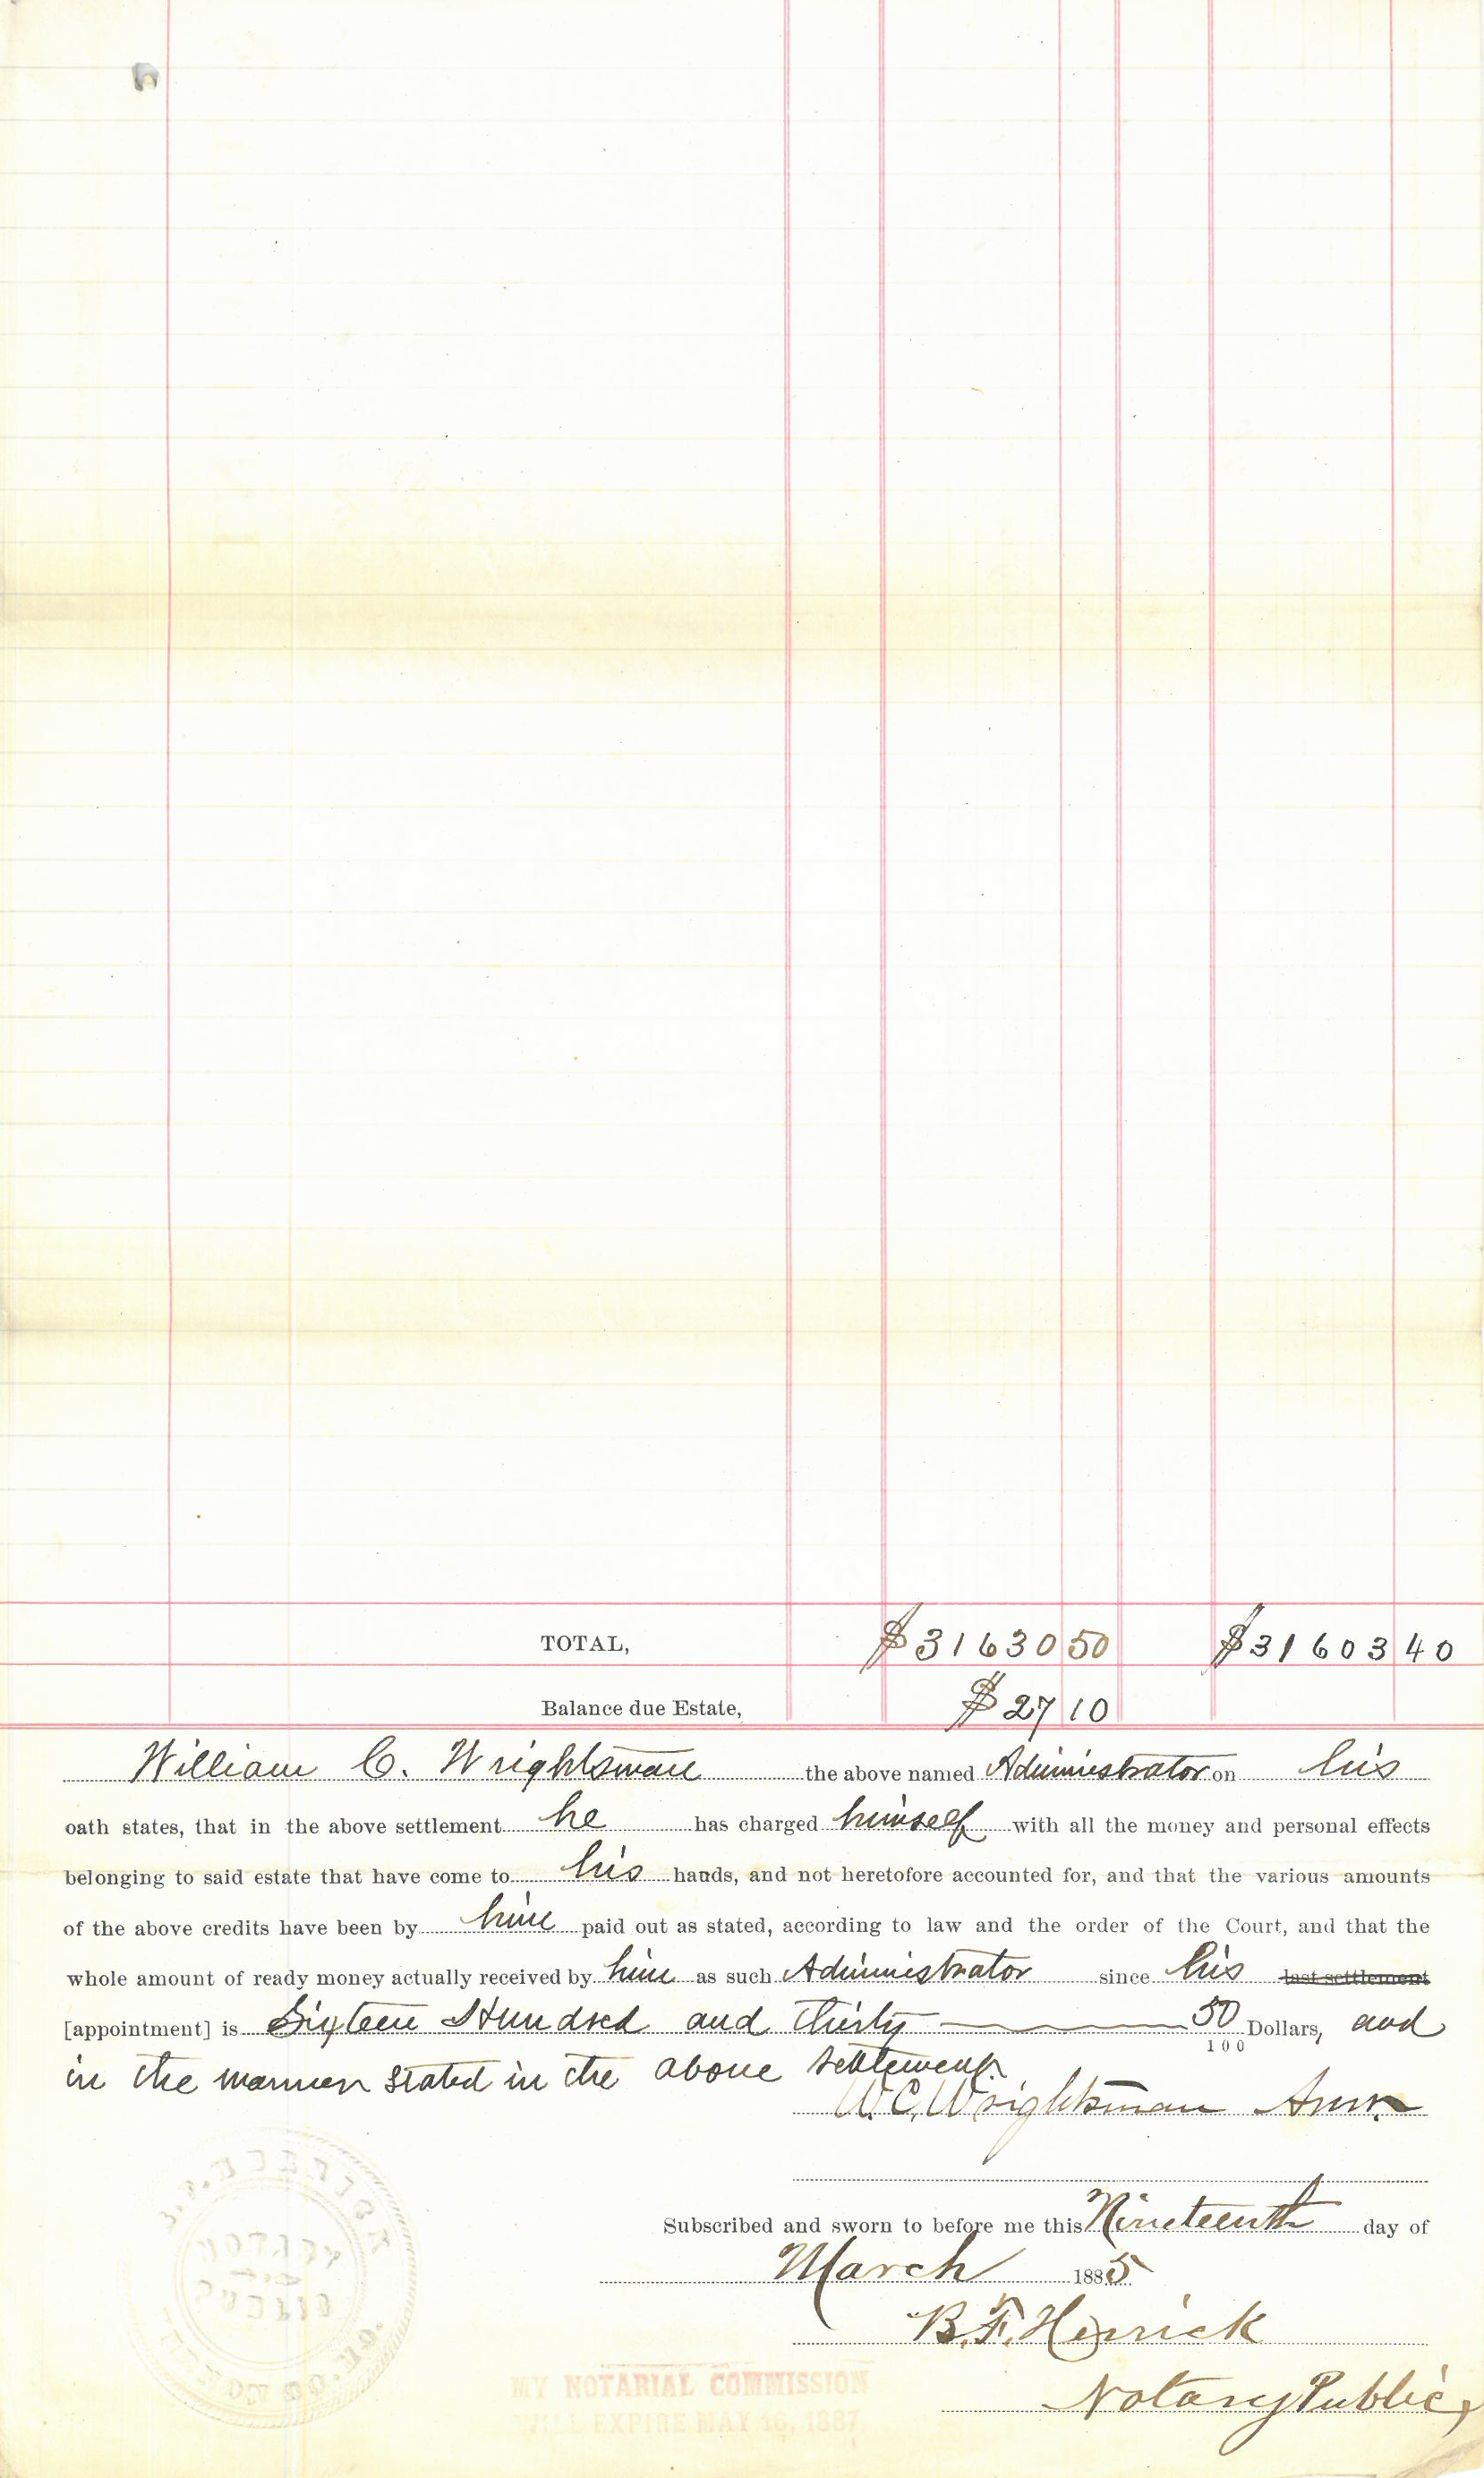 TOTAL, $31630 50 $31603 40
Balance due Estate, $27 10
William C. Wrightsman the above named Administrator on his
oath states, that in the above settlement he has charged himself with all the money and personal effects
belonging to said estate that have come to his hands, and not heretofore accounted for, and that the various amounts
of the above credits have been by him paid out as stated, according to law and the order of the Court, and that the
whole amount of ready money actually received by him as such Administrator since his last settlement
[appointment] is Sixteen Hundred and Thirty 50/100 Dollars, and
in the manner stated in the above settlement.
W.C. Wrightsman Admr.
Subscribed and sworn to before me this Nineteenth day of
March 1885
B.F. Herrick
Notary Public,
MY NOTARIAL COMMISSION
WILL EXPIRE MAY 16, 1887.
NOTARY
PUBLIC